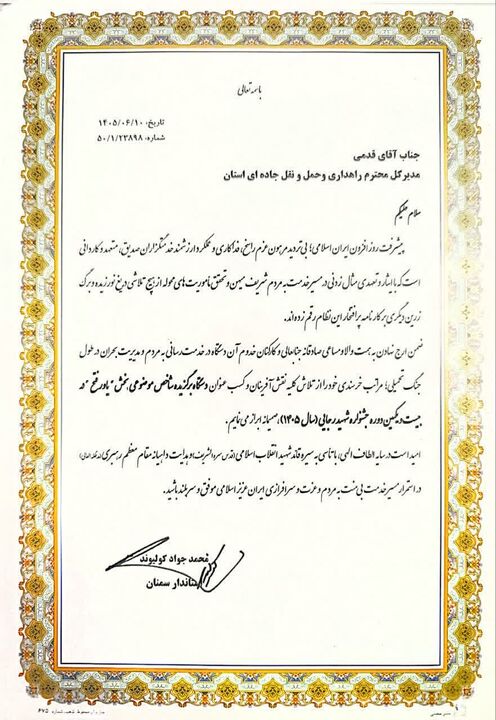 باسمه تعالی
تاریخ: ۱۴۰۵/۰۶/۱۰
شماره: ۵۰/۱/۲۳۸۹۸
جناب آقای قدمی
مدیرکل محترم راهداری وحمل و نقل جاده ای استان
سلام علیکم
پیشرفت روز افزون ایران اسلامی؛ بی تردید مرهون عزم راسخ، فداکاری و عملکرد ارزشمند خدمتگزاران صدیق، متعهد و کاردانی
است که با ایثار و تعهدی مثال زدنی در مسیر خدمت به مردم شریف میهن و تحقق ماموریت های محوله از هیچ تلاشی دریغ نورزیده و برگ
زرین دیگری بر کارنامه پر افتخار این نظام رقم زده اند.
ضمن ارج نهادن به همت والا و مساعی صادقانه جنابعالی و کارکنان خدوم آن دستگاه در خدمت رسانی به مردم و مدیریت بحران در طول
جنگ تحمیلی؛ مراتب خرسندی خود را از تلاش کلیه نقش آفرینان و کسب عنوان دستگاه برگزیده شاخص موضوعی، بخش "یاور فتح" در
بیست و یکمین دوره جشنواره شهید رجایی (سال ۱۴۰۵)، صمیمانه ابراز می نمایم.
امید است در سایه الطاف الهی، با تاسی به سیره قائد شهید انقلاب اسلامی (قدس سره الشریف) و هدایت داهیانه مقام معظم رهبری
در استمرار مسیر خدمت بی منت به مردم و عزت و سرافرازی ایران عزیز اسلامی موفق و سربلند باشید.
محمد جواد کولیوند
استاندار سمنان